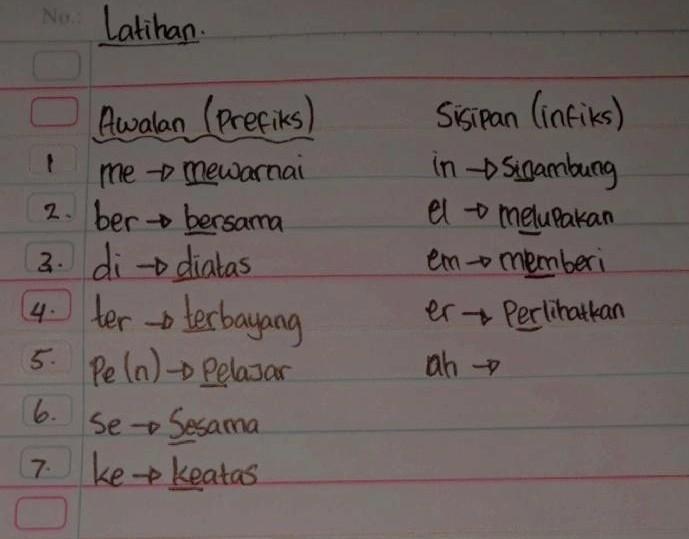 No.:
Latihan.
Awalan (Prefiks) Sisipan (infiks)
1 me → mewarnai in → Sinambung
2. ber → bersama el → melupakan
3. di → diatas em → memberi
4. ter → terbayang er → Perlihatkan
5. Pe(n) → Pelajar ah →
6. Se → Sesama
7. ke → keatas